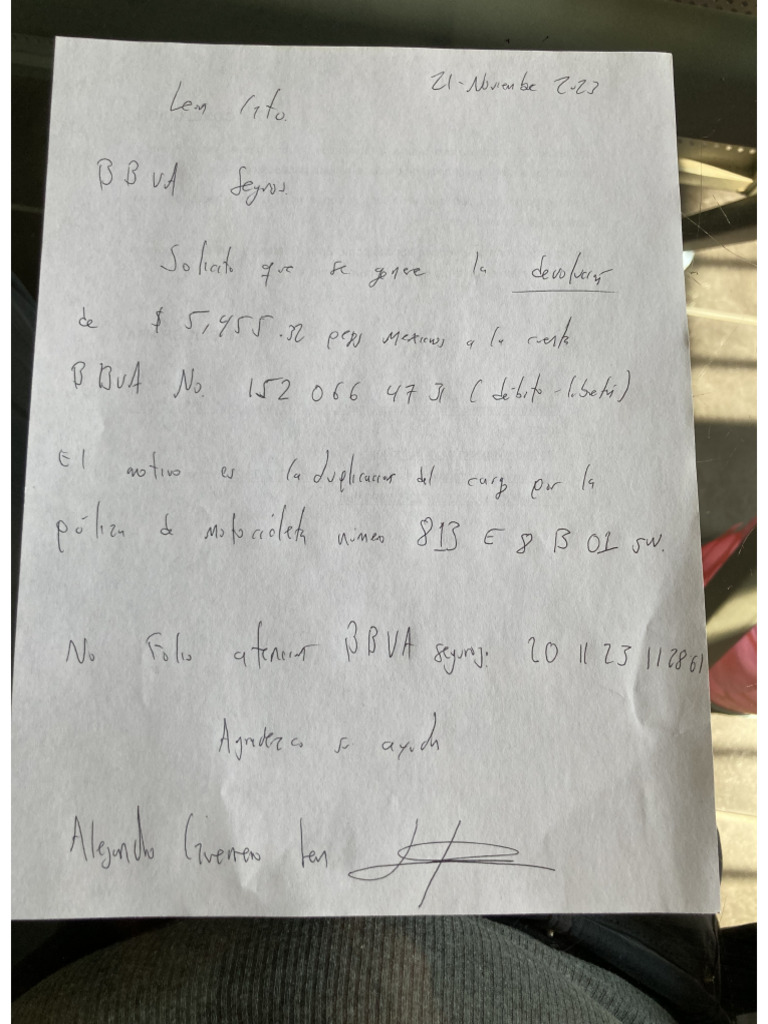 21-Noviembre 2023
León Gto.
BBVA Seguros.
Solicito que se genere la devolución
de $ 5,455.32 pesos mexicanos a la cuenta
BBVA No. 152 066 4731 (débito-libretón)
El motivo es la duplicacion del cargo por la
póliza de motocicleta número 813 E 8 B 01 SW.
No Folio atencion BBVA seguros: 20 11 23 112861
Agradezco su ayuda
Alejandro Guerrero